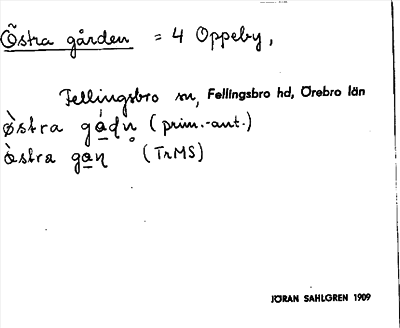 Östra gården = 4 Oppeby,
Fellingsbro sn, Fellingsbro hd, Örebro län
östra gådn (prim.-ant.)
östra gan (TrMS)
JÖRAN SAHLGREN 1909